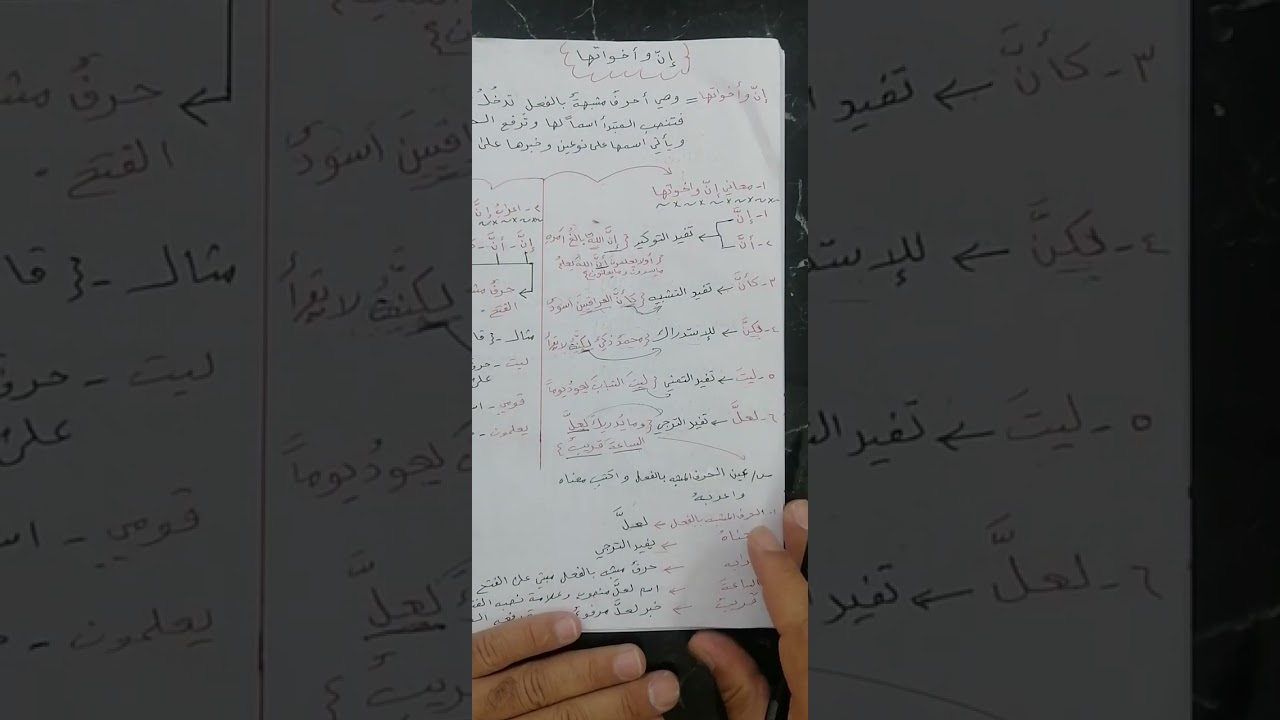 إنّ وأخواتها
إنّ وأخواتها = وهي أحرفٌ مشبهةٌ بالفعل تدخُلُ
فتنصب المبتدأ اسماً لها وترفع
ويأتي اسمها على نوعين وخبرها على
١- معاني إنّ وأخواتها
١- إنَّ
٢- أنَّ
← تفيد التوكيد { إنَّ اللهَ بالغُ أمره
{ أولا يعلمون أنَّ اللهَ يعلمُ
ما يسرون وما يعلنون }
٣- كأنَّ ← تفيد التشبيه { كأنَّ العراقيينَ أسودٌ
٤- لكنَّ ← للإستدراك { محمدٌ ذكيٌ لكنَّهُ لا يقرأُ
٥- ليتَ ← تفيد التمني { ليتَ الشبابَ يعودُ يوماً
٦- لعلَّ ← تفيد الترجي { وما يُدريكَ لعلَّ
الساعةَ قريبٌ }
٢- اعرابُ إنَّ
إنَّ - أنَّ -
حرفٌ
الفتح .
مثال - { قا
ليت - حرف
على
قومي - ا
يعلمون -
س/ عين الحرف المشبه بالفعل واكتب معناه
واعربهُ
١- الحرف المشبه بالفعل ← لعلَّ
← يفيد الترجي
← حرفٌ مشبه بالفعل مبني على الفتح
الساعةَ ← اسم لعلَّ منصوب وعلامة نصبه
قريبٌ ← خبر لعلَّ مرفوع